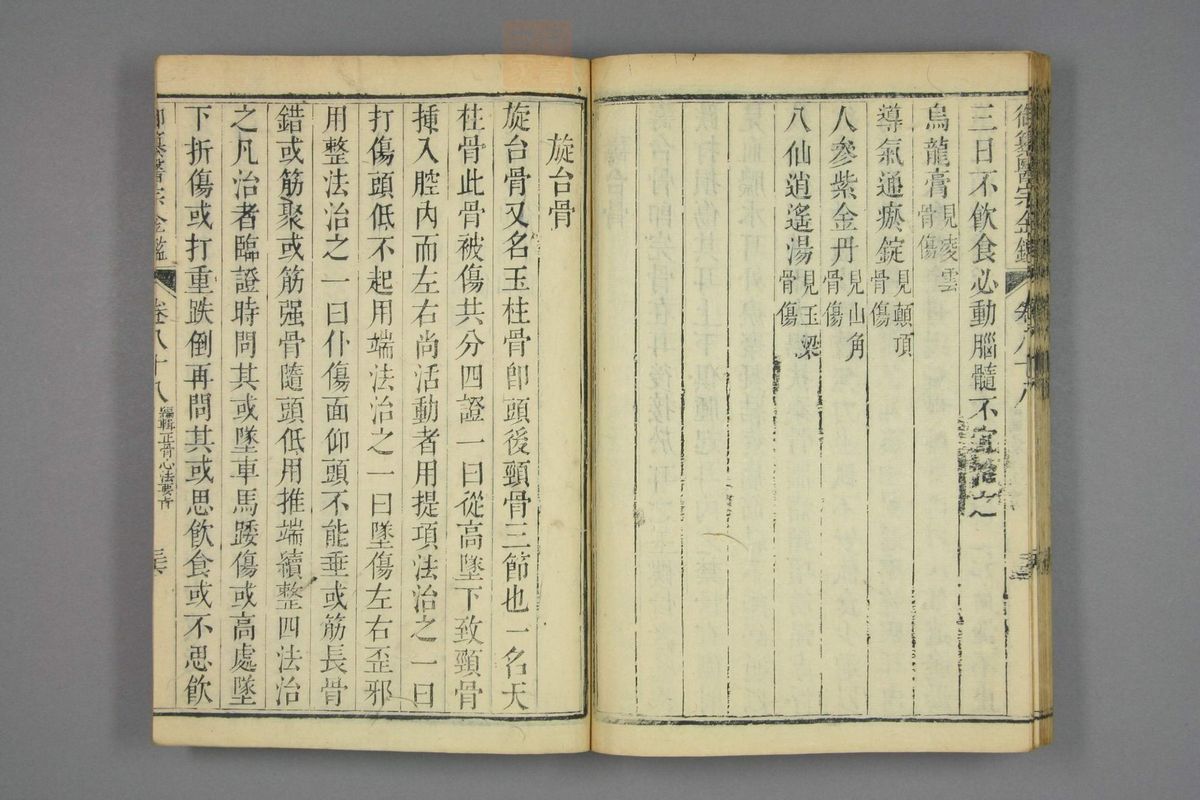 三日不飲食必動腦髓不宜治之
烏龍膏見凌雲骨傷
導氣通瘀錠見顛頂骨傷
人參紫金丹見山角骨傷
八仙逍遙湯見玉梁骨傷
旋台骨
旋台骨又名玉柱骨卽頭後頸骨三節也一名天
柱骨此骨被傷共分四證一曰從高墜下致頸骨
揷入腔內而左右尚活動者用提項法治之一曰
打傷頭低不起用端法治之一曰墜傷左右歪邪
用整法治之一曰仆傷面仰頭不能垂或筋長骨
錯或筋聚或筋强骨隨頭低用推端續整四法治
之凡治者臨證時問其或墜車馬踒傷或高處墜
下折傷或打重跌倒再問其或思飲食或不思飲
御纂醫宗金鑑 卷八十八 編輯正骨心法要旨